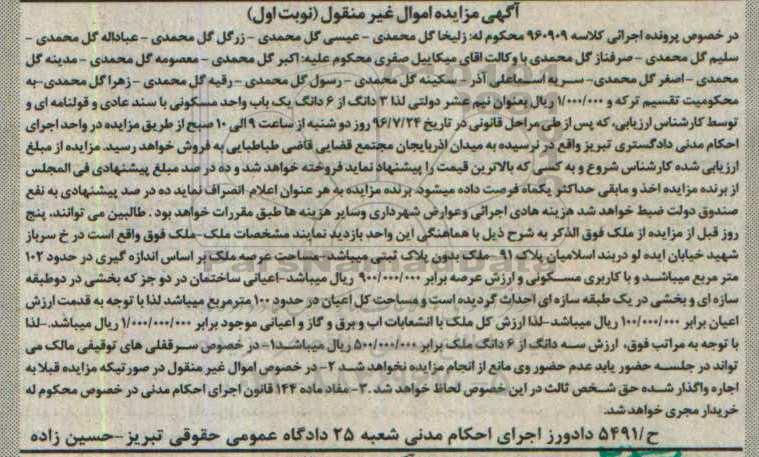 آگهی مزایده اموال غیر منقول (نوبت اول)
در خصوص پرونده اجرائی کلاسه ۹۶۰۹۰۹ محکوم له: زلیخا گل محمدی - عیسی گل محمدی - زرگل گل محمدی - عباداله گل محمدی -
سلیم گل محمدی - صرفناز گل محمدی با وکالت اقای میکاییل صفری محکوم علیه: اکبر گل محمدی - معصومه گل محمدی - مدینه گل
محمدی - اصغر گل محمدی- سریه اسماعلی آذر - سکینه گل محمدی - رسول گل محمدی - رقیه گل محمدی - زهرا گل محمدی-به
محکومیت تقسیم ترکه و ۱/۰۰۰/۰۰۰ ریال بعنوان نیم عشر دولتی لذا ۳ دانگ از ۶ دانگ یک باب واحد مسکونی با سند عادی و قولنامه ای و
توسط کارشناس ارزیابی، که پس از طی مراحل قانونی در تاریخ ۹۶/۷/۲۴ روز دو شنبه از ساعت ۹ الی ۱۰ صبح از طریق مزایده در واحد اجرای
احکام مدنی دادگستری تبریز واقع در نرسیده به میدان اذربایجان مجتمع قضایی قاضی طباطبایی به فروش خواهد رسید. مزایده از مبلغ
ارزیابی شده کارشناس شروع و به کسی که بالاترین قیمت را پیشنهاد نماید فروخته خواهد شد و ده در صد مبلغ پیشنهادی فی المجلس
از برنده مزایده اخذ و مابقی حداکثر یکماه فرصت داده میشود. برنده مزایده به هر عنوان اعلام انصراف نماید ده در صد پیشنهادی به نفع
صندوق دولت ضبط خواهد شد هزینه هادی اجرائی وعوارض شهرداری وسایر هزینه ها طبق مقررات خواهد بود . طالبین می توانند، پنج
روز قبل از مزایده از ملک فوق الذکر به شرح ذیل با هماهنگی این واحد بازدید نمایند مشخصات ملک-ملک فوق واقع است در خ سرباز
شهید خیابان ایده لو دربند اسلامیان پلاک ۹۱ -ملک بدون پلاک ثبتی میباشد-مساحت عرصه ملک بر اساس اندازه گیری در حدود ۱۰۲
متر مربع میباشد و با کاربری مسکونی و ارزش عرصه برابر ۹۰۰/۰۰۰/۰۰۰ ریال میباشد-اعیانی ساختمان در دو جز که بخشی در دوطبقه
سازه ای و بخشی در یک طبقه سازه ای احداث گردیده است و مساحت کل اعیان در حدود ۱۰۰ مترمربع میباشد لذا با توجه به قدمت ارزش
اعیان برابر ۱۰۰/۰۰۰/۰۰۰ ریال میباشد-لذا ارزش کل ملک با انشعابات اب و برق و گاز و اعیانی موجود برابر ۱/۰۰۰/۰۰۰/۰۰۰ ریال میباشد.-لذا
با توجه به مراتب فوق، ارزش سه دانگ از ۶ دانگ ملک برابر ۵۰۰/۰۰۰/۰۰۰ ریال میباشد.۱- در خصوص سرقفلی های توقیفی مالک می
تواند در جلسه حضور یابد عدم حضور وی مانع از انجام مزایده نخواهد شد ۲- در خصوص اموال غیر منقول در صورتیکه مزایده قبلا به
اجاره واگذار شده حق شخص ثالث در این خصوص لحاظ خواهد شد .۳-مفاد ماده ۱۴۴ قانون اجرای احکام مدنی در خصوص محکوم له
خریدار مجری خواهد شد.
ح/۵۴۹۱ دادورز اجرای احکام مدنی شعبه ۲۵ دادگاه عمومی حقوقی تبریز-حسین زاده